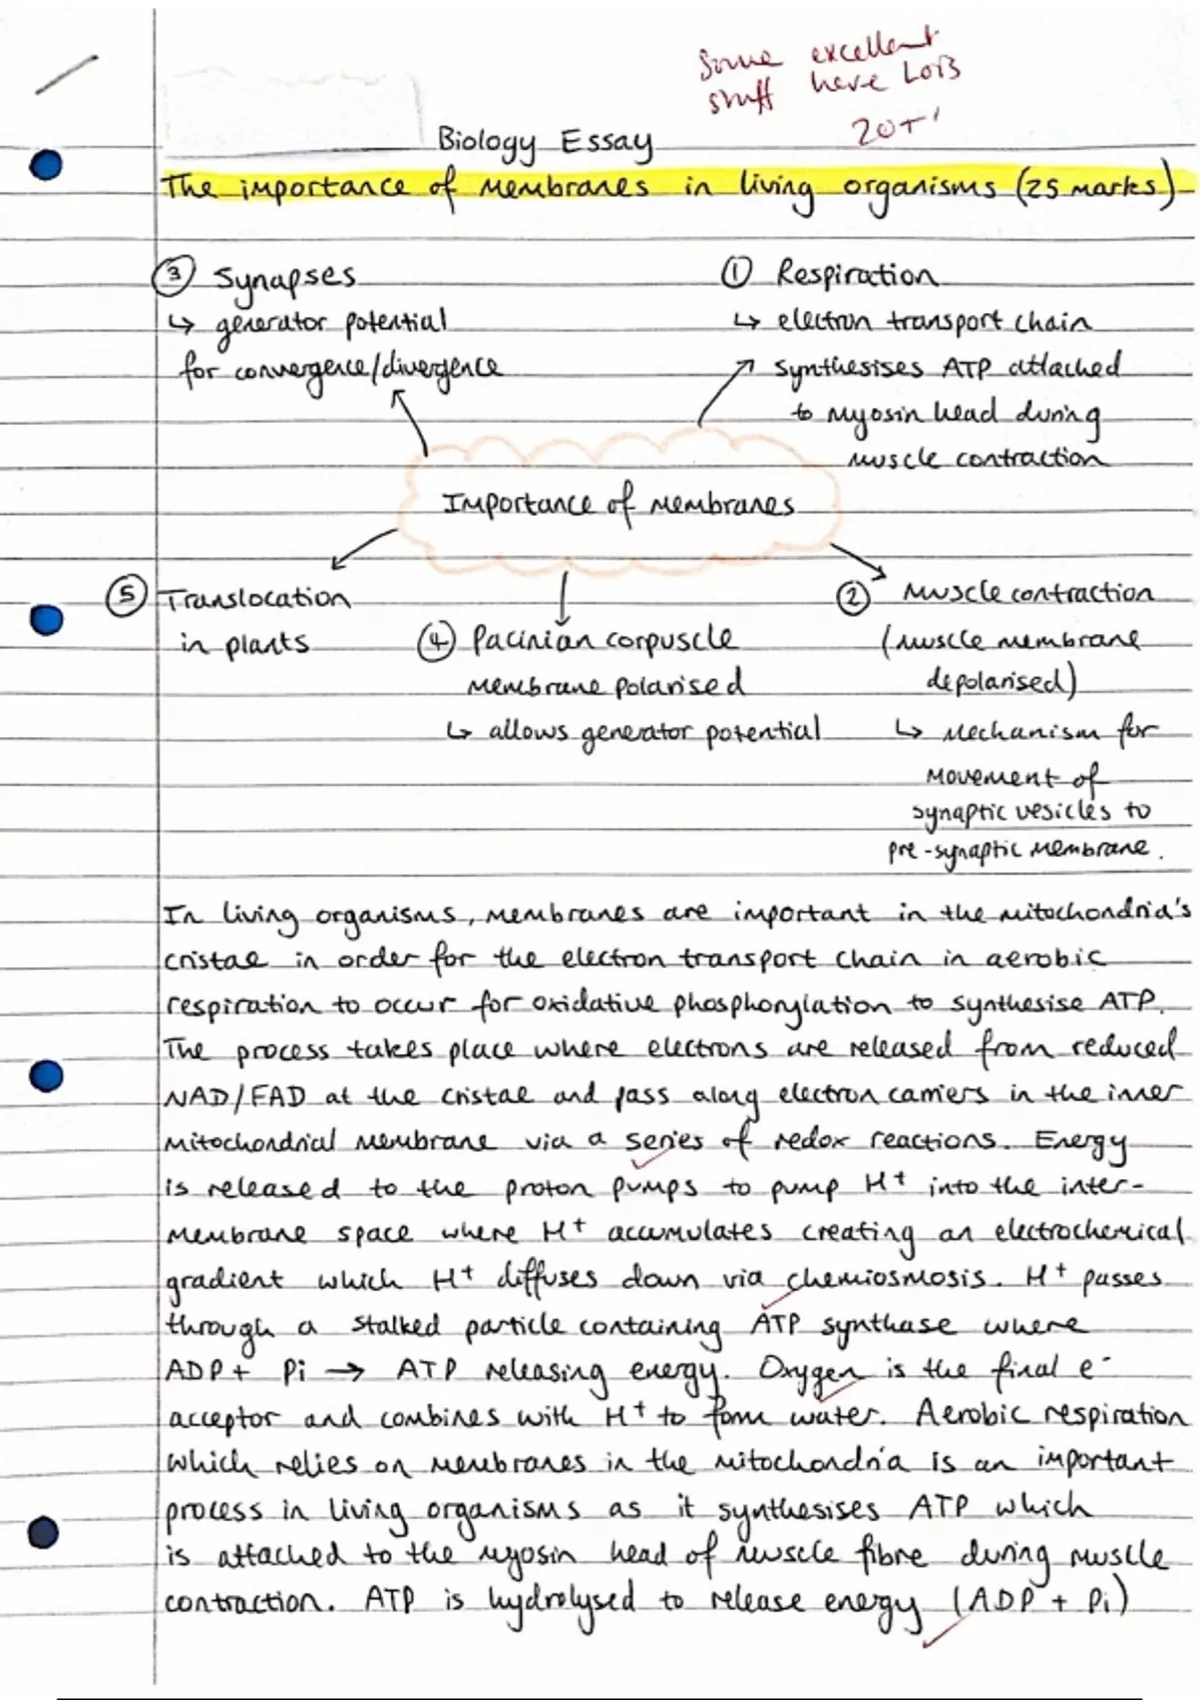 Some excellent
stuff here Lois
20+
Biology Essay
The importance of membranes in living organisms (25 marks)
③ Synapses
↳ generator potential
for convergence/divergence
① Respiration
↳ electron transport chain
synthesises ATP attached
to myosin head during
muscle contraction
Importance of membranes
⑤ Translocation
in plants
④ Pacinian corpuscle
membrane polarised
↳ allows generator potential
② Muscle contraction
(muscle membrane
depolarised)
↳ mechanism for
movement of
synaptic vesicles to
pre-synaptic membrane.
In living organisms, membranes are important in the mitochondria's
cristae in order for the electron transport chain in aerobic
respiration to occur for oxidative phosphorylation to synthesise ATP.
The process takes place where electrons are released from reduced
NAD/FAD at the cristae and pass along electron carriers in the inner
mitochondrial membrane via a series of redox reactions. Energy
is released to the proton pumps to pump H⁺ into the inter-
membrane space where H⁺ accumulates creating an electrochemical
gradient which H⁺ diffuses down via chemiosmosis. H⁺ passes
through a stalked particle containing ATP synthase where
ADP + Pi → ATP releasing energy. Oxygen is the final e⁻
acceptor and combines with H⁺ to form water. Aerobic respiration
which relies on membranes in the mitochondria is an important
process in living organisms as it synthesises ATP which
is attached to the myosin head of muscle fibre during muscle
contraction. ATP is hydrolysed to release energy (ADP + Pi)